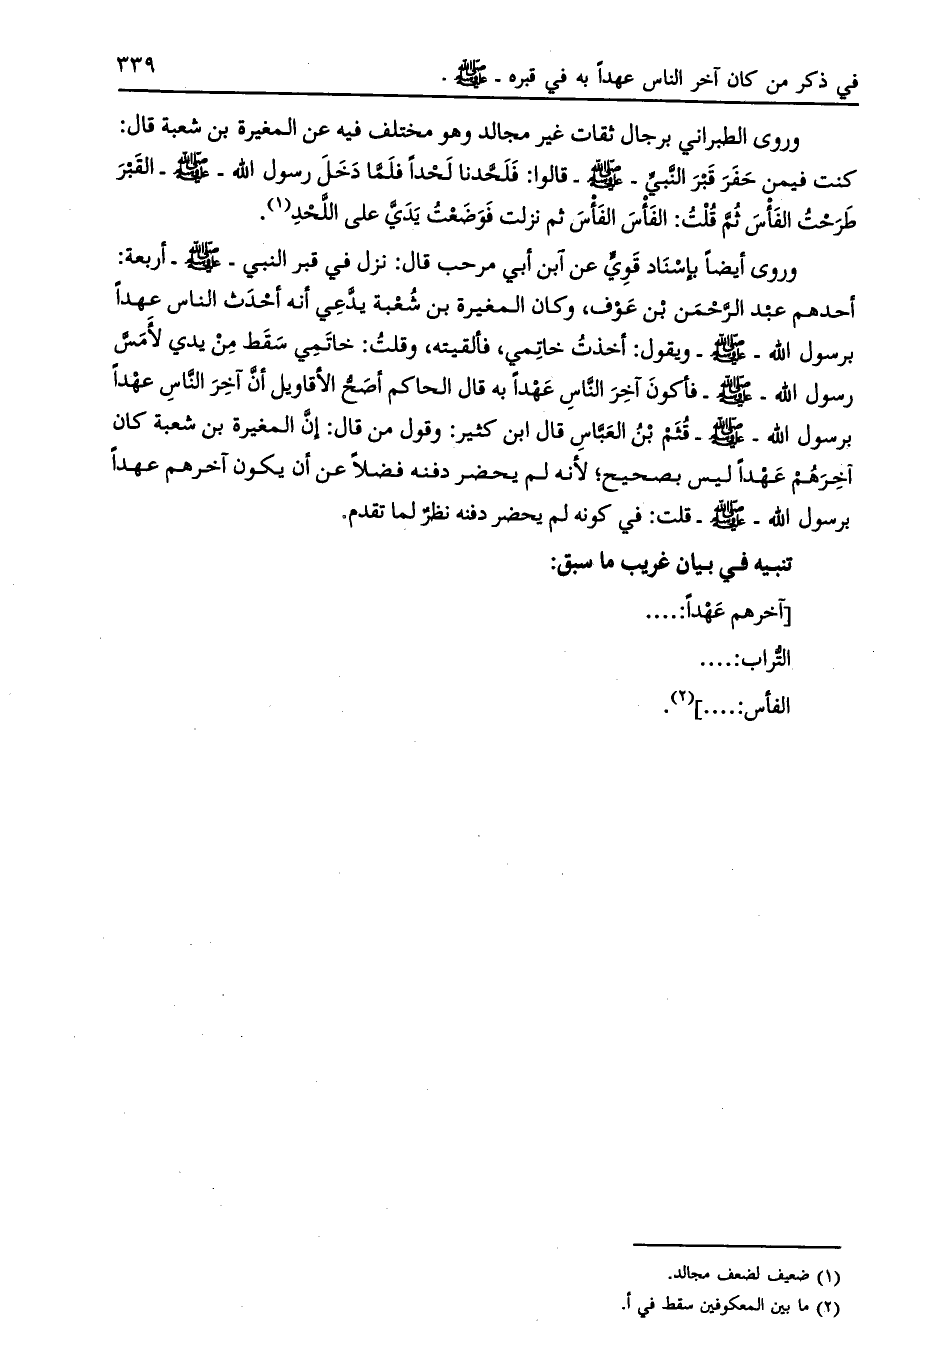 في ذكر من كان آخر الناس عهداً به في قبره - ﷺ - . ٣٣٩
وروى الطبراني برجال ثقات غير مجالد وهو مختلف فيه عن المغيرة بن شعبة قال:
كنت فيمن حَفَرَ قَبْرَ النَّبيِّ - ﷺ - قالوا: فَلَحَّدنا لَحْداً فلَمَّا دَخَلَ رسول الله - ﷺ - القَبْرَ
طَرَحْتُ الفَأْسَ ثُمَّ قُلْتُ: الفَأْسَ الفَأْسَ ثم نزلت فَوَضَعْتُ يَدَيَّ على اللَّحْدِ(١).
وروى أيضاً بإسْنَاد قَوِيٍّ عن آبن أبي مرحب قال: نزل في قبر النبي - ﷺ - أربعة:
أحدهم عبْد الرَّحْمَن بْن عَوْف، وكان المغيرة بن شُعْبة يدَّعِي أنه أحْدَث الناس عهداً
برسول الله - ﷺ - ويقول: أخذتُ خاتِمي، فألقيته، وقلتُ: خاتَمِي سَقَط مِنْ يدي لأَمَسَّ
رسول الله - ﷺ - فأكونَ آخِرَ النَّاسِ عَهْداً به قال الحاكم أصَحُّ الأقاويل أنَّ آخِرَ النَّاسِ عهْداً
برسول الله - ﷺ - قُثَمْ بْنُ العَبَّاسِ قال ابن كثير: وقول من قال: إنَّ المغيرة بن شعبة كان
آخِرَهُمْ عَهْداً ليس بصحيح؛ لأنه لم يحضر دفنه فضلاً عن أن يكون آخرهم عهداً
برسول الله - ﷺ - قلت: في كونه لم يحضر دفنه نظرٌ لما تقدم.
تنبيه في بيان غريب ما سبق:
[آخرهم عَهْداً:....
التُّراب:....
الفأس:....](٢).
(١) ضعيف لضعف مجالد.
(٢) ما بين المعكوفين سقط في أ.